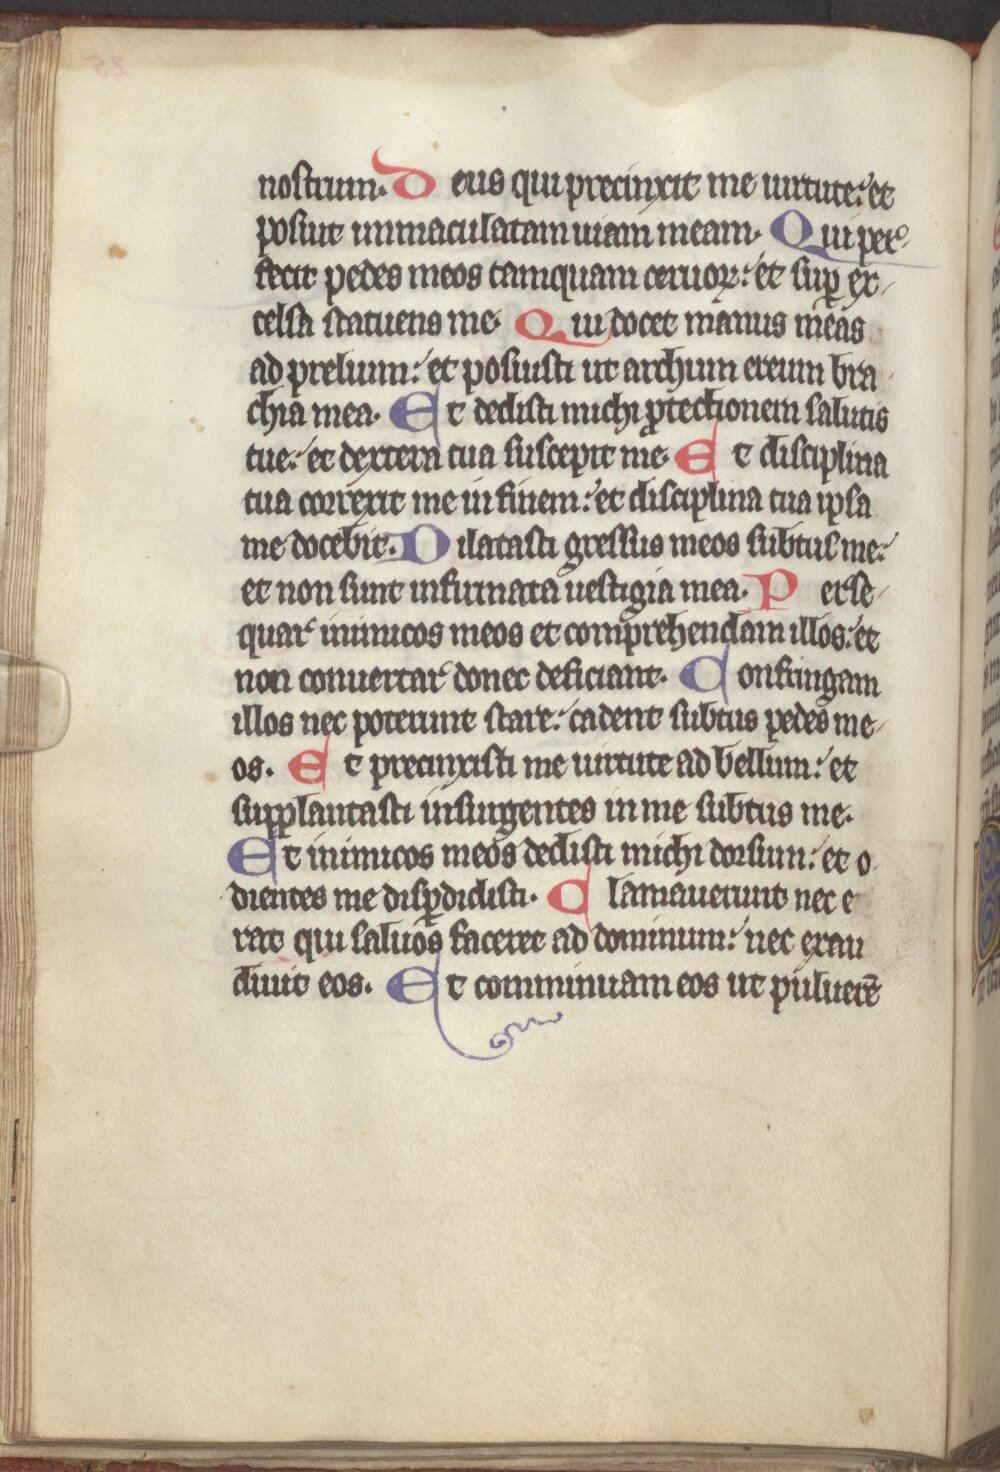 nostrum. Deus qui precinxit me uirtute: et
posuit immaculatam uiam meam. Qui per
fecit pedes meos tamquam ceruoꝝ: et suꝑ ex-
celsa statuens me. Qui docet manus meas
ad prelium: et posuisti ut archum ereum bra-
chia mea. Et dedisti michi ꝓtectionem salutis
tue: et dextera tua suscepit me. Et disciplina
tua correxit me in finem: et disciplina tua ipsa
me docebit. Dilatasti gressus meos subtus me:
et non sunt infirmata uestigia mea. Perse-
quar inimicos meos et comprehendam illos: et
non conuertar donec deficiant. Confringam
illos nec poterunt stare: cadent subtus pedes me-
os. Et precinxisti me uirtute ad bellum: et
supplantasti insurgentes in me subtus me.
Et inimicos meos dedisti michi dorsum: et o
dientes me disꝑdidisti. Clamauerunt nec e
rat qui saluos faceret ad dominum: nec exau
diuit eos. Et comminuam eos ut puluerē